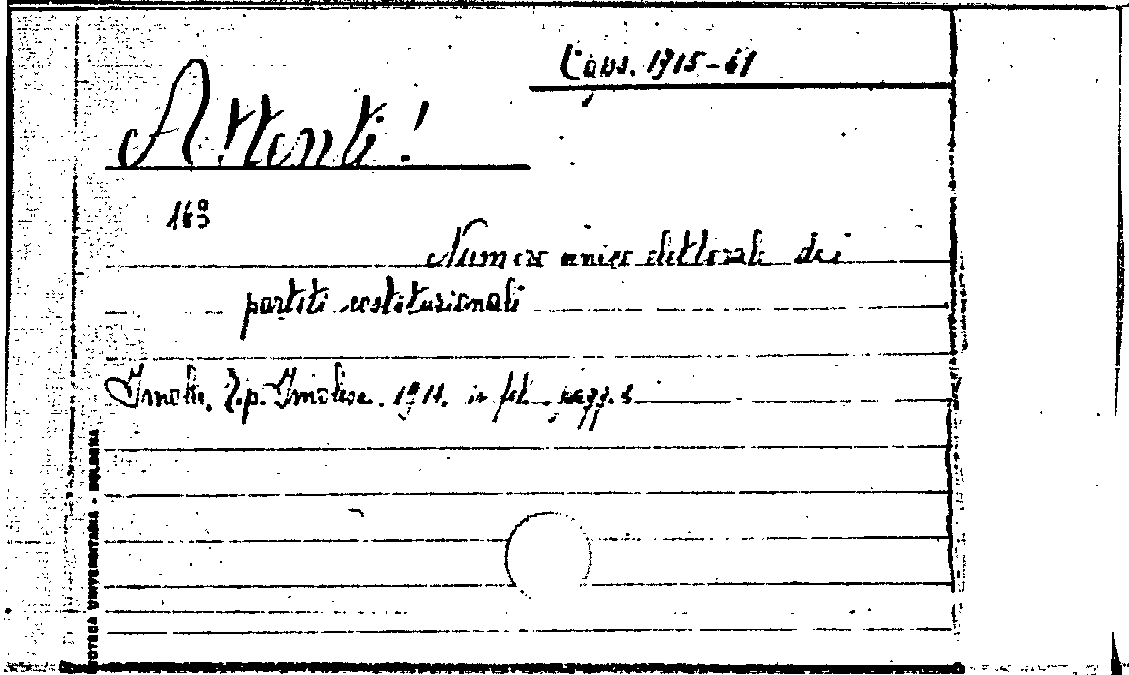 Caps. 1915-61
Attenti!
163
Numero unico elettorale dei
partiti costituzionali
Imola, Tip. Imolese. 1914. in fol. pagg.
BIBLIOTECA UNIVERSITARIA - BOLOGNA